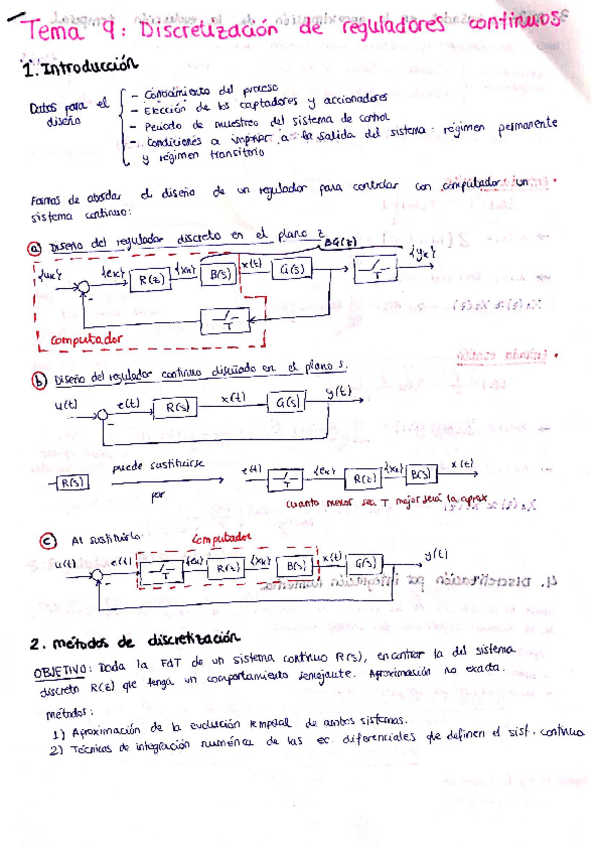 Tema 9: Discretización de reguladores continuos
1. Introducción
Datos para el diseño
- Conocimiento del proceso
- Elección de los captadores y accionadores
- Periodo de muestreo del sistema de control
- Condiciones a imponer a la salida del sistema: régimen permanente
y régimen transitorio
Formas de abordar el diseño de un regulador para controlar con computador un
sistema continuo:
a) Diseño del regulador discreto en el plano z
BG(z)
{uk} {ek} R(z) {xk} B(s) x(t) G(s) T {yk}
-
T
computador
b) Diseño del regulador continuo diseñado en el plano s.
u(t) e(t) R(s) x(t) G(s) y(t)
-
R(s) puede sustituirse por e(t) T {ek} R(z) {xk} B(s) x(t)
cuanto menor sea T mejor será la aprox
c) Al sustituirlo:
computador
u(t) e(t) T {ek} R(z) {xk} B(s) x(t) G(s) y(t)
-
2. métodos de discretización
OBJETIVO: Dada la FdT de un sistema continuo R(s), encontrar la del sistema
discreto R(z) que tenga un comportamiento semejante. Aproximación no exacta.
métodos:
1) Aproximación de la evolución temporal de ambos sistemas.
2) Técnicas de integración numérica de las ec. diferenciales que definen el sist. continuo